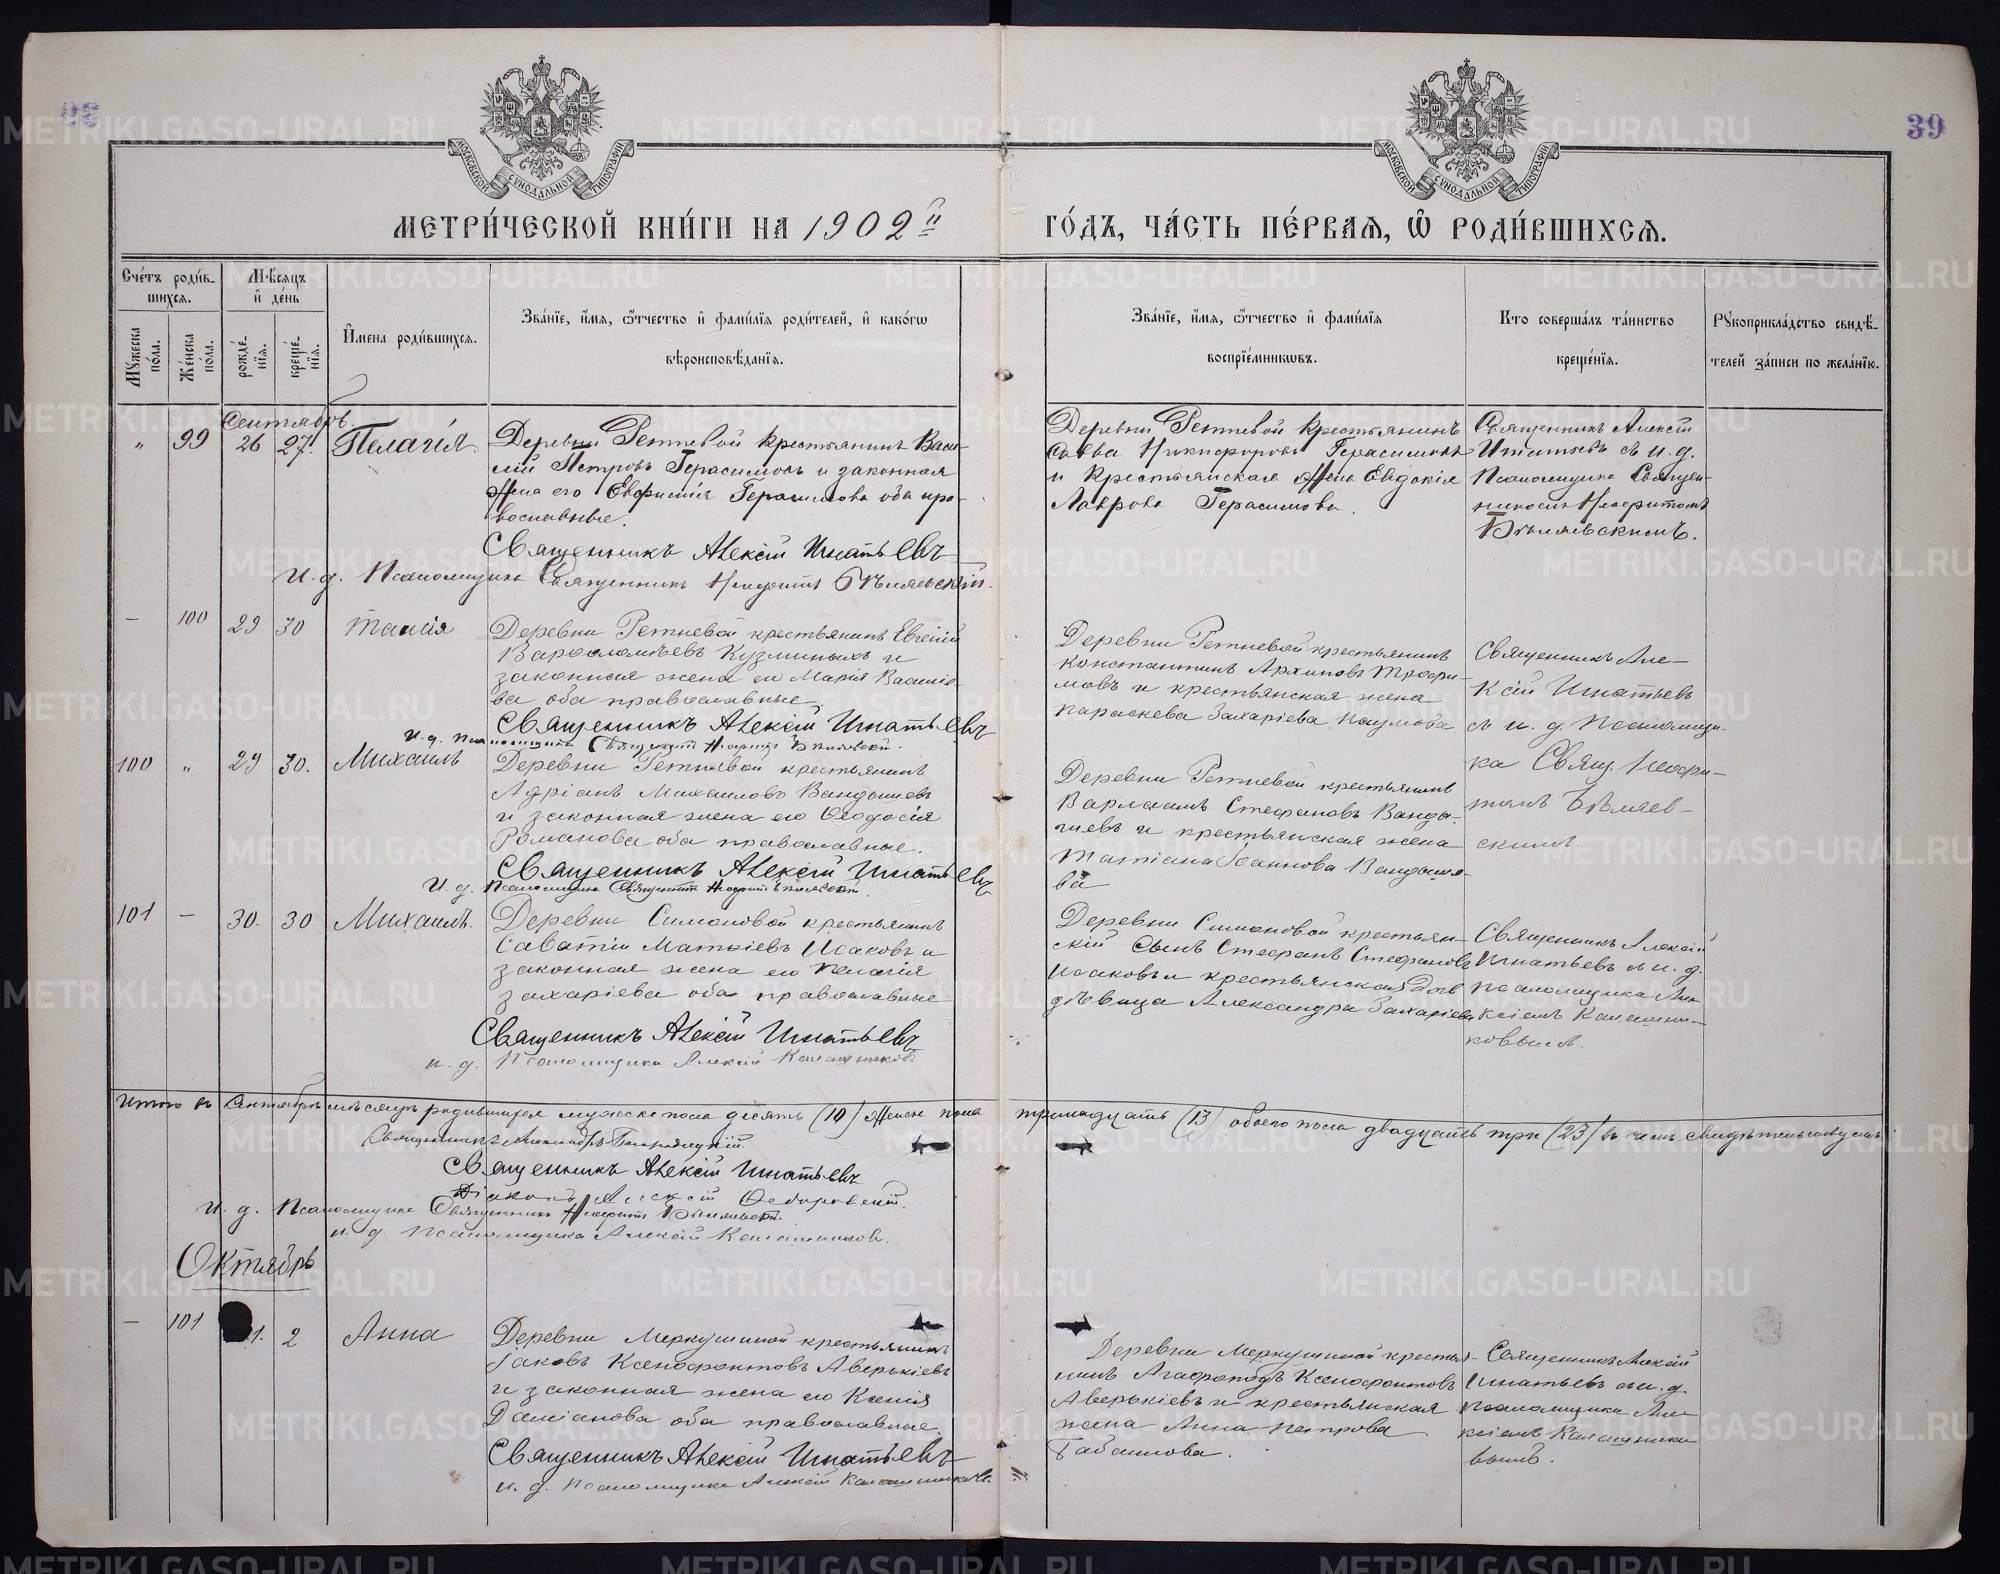 39
МЕТРИ́ЧЕСКОЙ КНИ́ГИ НА 1902 й ГО́ДЪ, ЧА́СТЬ ПЕ́РВАЯ, Ѿ РОДИ́ВШИХСЯ.
МОСКОВСКОЙ СѴНОДАЛЬНОЙ ТИПОГРАФІИ
МОСКОВСКОЙ СѴНОДАЛЬНОЙ ТИПОГРАФІИ
Сче́тъ роди́вшихся.
Мꙋжеска по́ла.
Же́нска по́ла.
Мѣ́сяцъ и҆ де́нь
рожде́нїя.
креще́нїя.
И҆мена роди́вшихся.
Зва́нїе, и҆́мя, ѻ҆́тчество и҆ фами́лїя роди́телей, и҆ како́гѡ
вѣроисповѣ́данїя.
Зва́нїе, и҆́мя, ѻ҆́тчество и҆ фами́лїя
воспрїе́мникѡвъ.
Кто соверша́лъ та́инство
креще́нїя.
Рꙋкоприкла́дство свидѣ́-
телей за́писи по жела́нїю.
Сентябрь
" 99 26 27. Пелагія
Деревни Ретневой крестьянинъ Васи-
лій Петровъ Герасимовъ и законная
жена его Евфимія Герасимова оба пра-
вославные.
Священникъ Алексій Игнатьевъ
И. д. Псаломщика Священникъ Неофитъ Бѣляевскій.
Деревни Ретневой крестьянинъ
Савва Никифоровъ Герасимовъ
и крестьянская жена Евдокія
Лаврова Герасимова.
Священникъ Алексій
Игнатьевъ съ и. д.
Псаломщика Священ-
никомъ Неофитомъ
Бѣляевскимъ.
— 100 29 30 Таисія
Деревни Ретневой крестьянинъ Евгеній
Варфоломѣевъ Кузминыхъ и
законная жена его Марія Василіе-
ва оба православные
Священникъ Алексій Игнатьевъ
И. д. Псаломщика Священникъ Неофитъ Бѣляевскій.
Деревни Ретневой крестьянинъ
Константинъ Архиповъ Трофи-
мовъ и крестьянская жена
Параскева Захаріева Наумова
Священникъ Але-
ксій Игнатьевъ
съ и. д. Псаломщи-
ка Свящ. Неофи-
томъ Бѣляев-
скимъ.
100 " 29 30. Михаилъ
Деревни Ретневой крестьянинъ
Адріанъ Михаиловъ Вандышевъ
и законная жена его Ѳеодосія
Романова оба православные.
Священникъ Алексій Игнатьевъ
И. д. Псаломщика Священникъ Неофитъ Бѣляевскій.
Деревни Ретневой крестьянинъ
Варлаамъ Стефановъ Ванды-
шевъ и крестьянская жена
Татіана Іоаннова Вандыше-
ва
101 — 30. 30 Михаилъ.
Деревни Симоновой крестьянинъ
Саватій Матѳіевъ Исаковъ и
законная жена его Пелагія
Захаріева оба православные
Священникъ Алексій Игнатьевъ
и. д. Псаломщика Алексій Калашниковъ
Деревни Симоновой крестьян-
скій сынъ Стефанъ Стефановъ
Исаковъ и крестьянская дочь
дѣвица Александра Захаріева
Священникъ Алексій
Игнатьевъ съ и. д.
псаломщика Але-
ксіемъ Калашни-
ковымъ.
Итого въ Сентябрѣ мѣсяцѣ родившихся мужска пола десять (10) Женск пола тринадцать (13) обоего пола двадцать три (23) въ чемъ свидѣтельствуемъ:
Священникъ
Священникъ Алексій Игнатьевъ
Діаконъ Алексій Ѳедоровскій.
И. д. Псаломщика Священникъ Неофитъ Бѣляевскій.
и. д. псаломщика Алексій Калашниковъ.
Октябрь
— 101 1. 2 Анна
Деревни Меркушиной крестьянинъ
Іаковъ Ксенофонтовъ Аверькіевъ
и законная жена его Ксенія
Даміанова оба православные.
Священникъ Алексій Игнатьевъ
и. д. псаломщика Алексій Калашниковъ.
Деревни Меркушиной крестья-
нинъ Агафоподъ Ксенофонтовъ
Аверькіевъ и крестьянская
жена Анна Петрова
Табаилова.
Священникъ Алексій
Игнатьевъ съ и. д.
псаломщика Але-
ксіемъ Калашнико-
вымъ.
METRIKI.GASO-URAL.RU